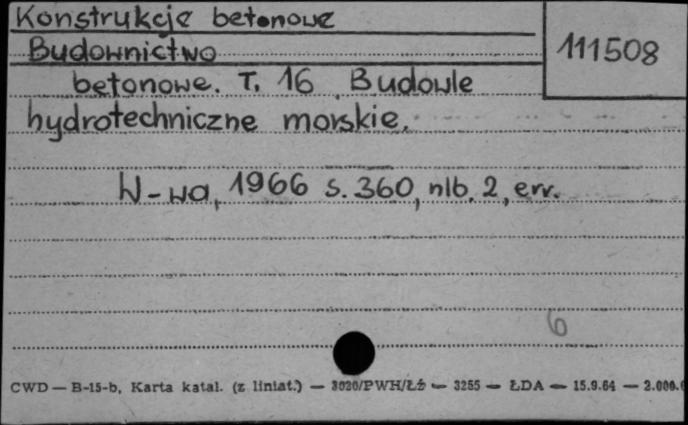 Konstrukcje betonowe
Budownictwo
111508
betonowe. T. 16 Budowle
hydrotechniczne morskie.
W-wa, 1966 s. 360, nlb. 2, err.
6
CWD — B-15-b, Karta katal. (z liniat.) — 3020/PWH/Łź — 3255 — ŁDA — 15.9.64 — 2.000.